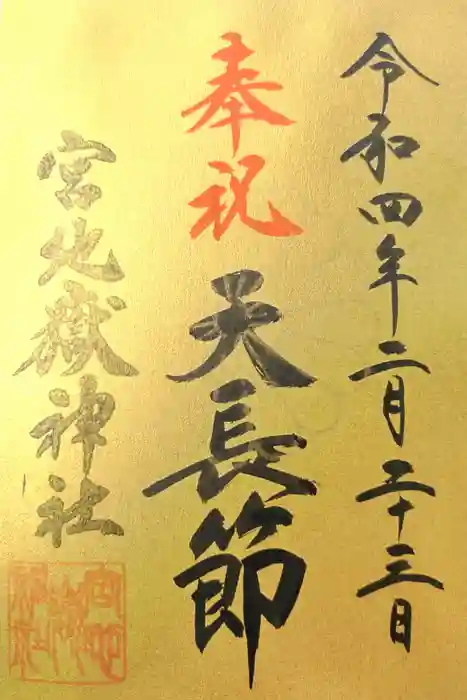 令和四年二月二十三日
奉祝
天長節
宮地嶽神社